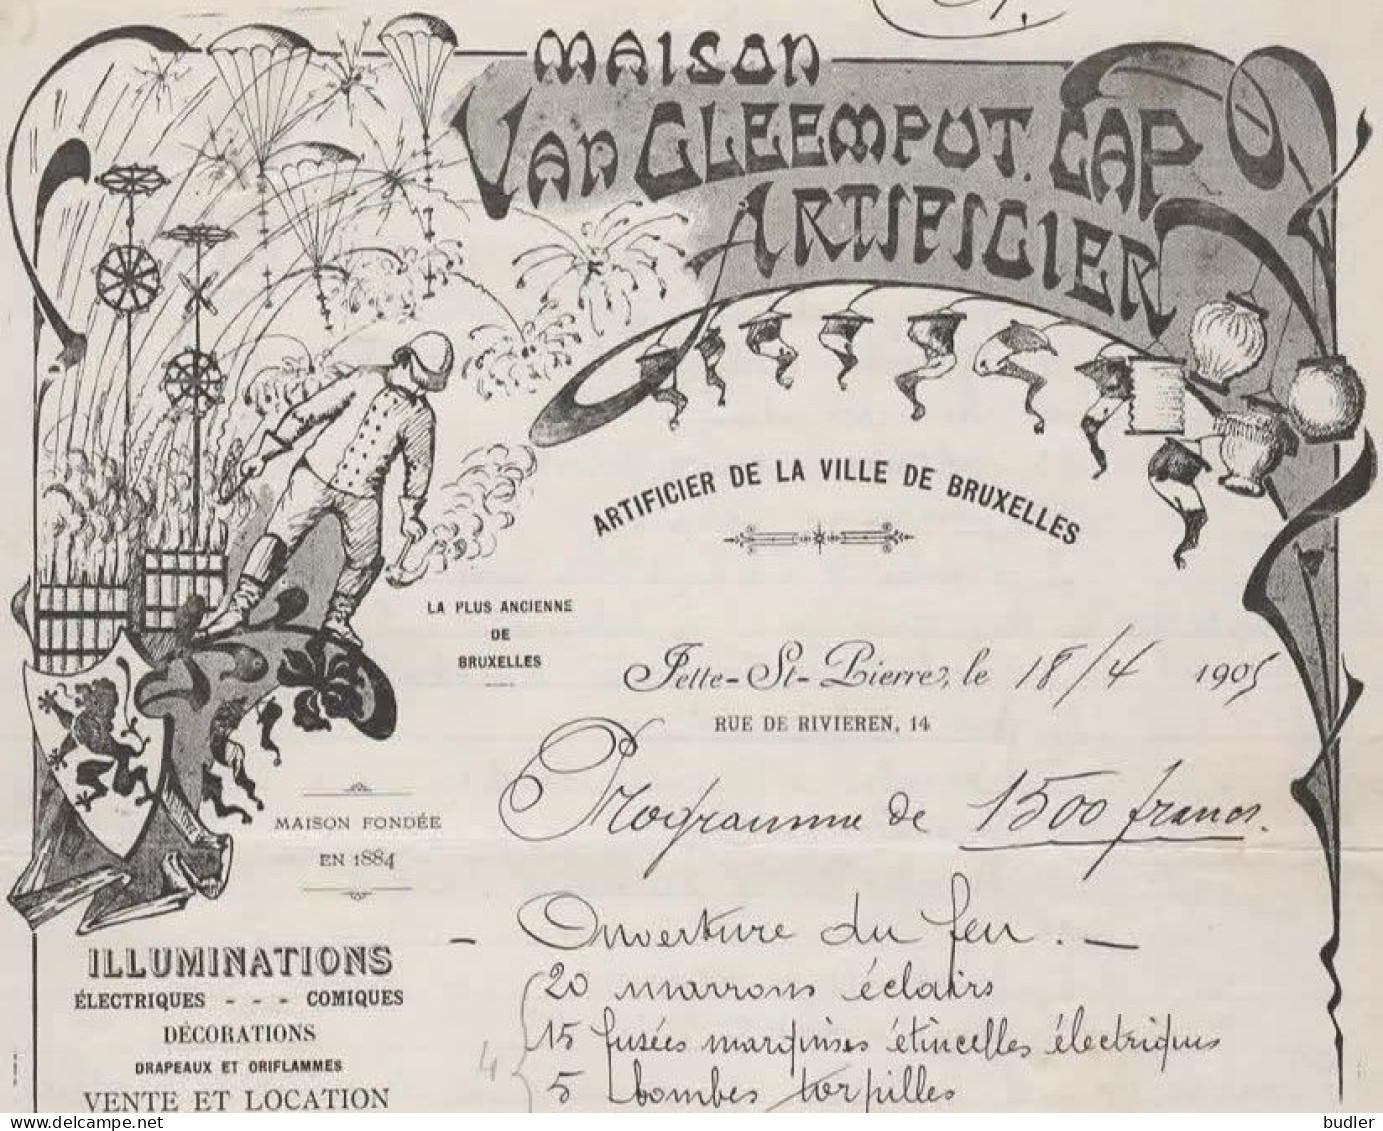 MAISON
VAN CLEEMPUT. CAP
ARTIFICIER
ARTIFICIER DE LA VILLE DE BRUXELLES
LA PLUS ANCIENNE
DE
BRUXELLES
Jette-St-Pierre, le 18/4 1905
RUE DE RIVIEREN, 14
Programme de 1500 francs.
MAISON FONDÉE
EN 1884
- Ouverture du feu. -
20 marrons éclairs
15 fusées marquises étincelles électriques
4
5 bombes torpilles
ILLUMINATIONS
ÉLECTRIQUES - - - COMIQUES
DÉCORATIONS
DRAPEAUX ET ORIFLAMMES
VENTE ET LOCATION
budler